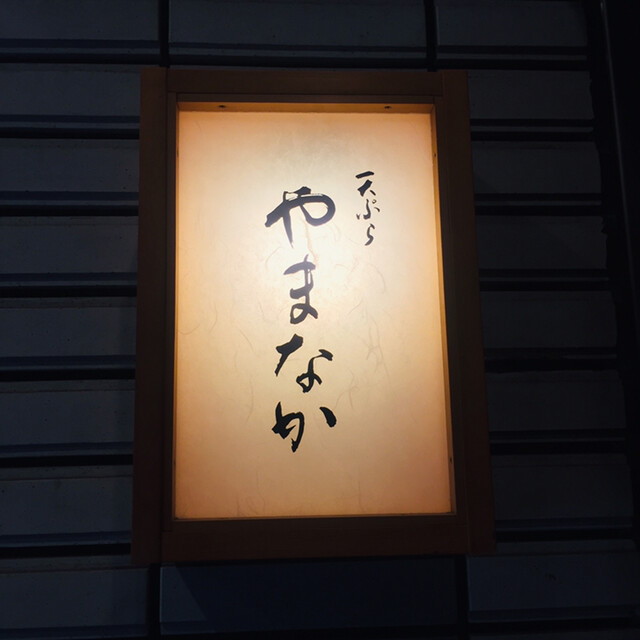 天ぷら
やまなか